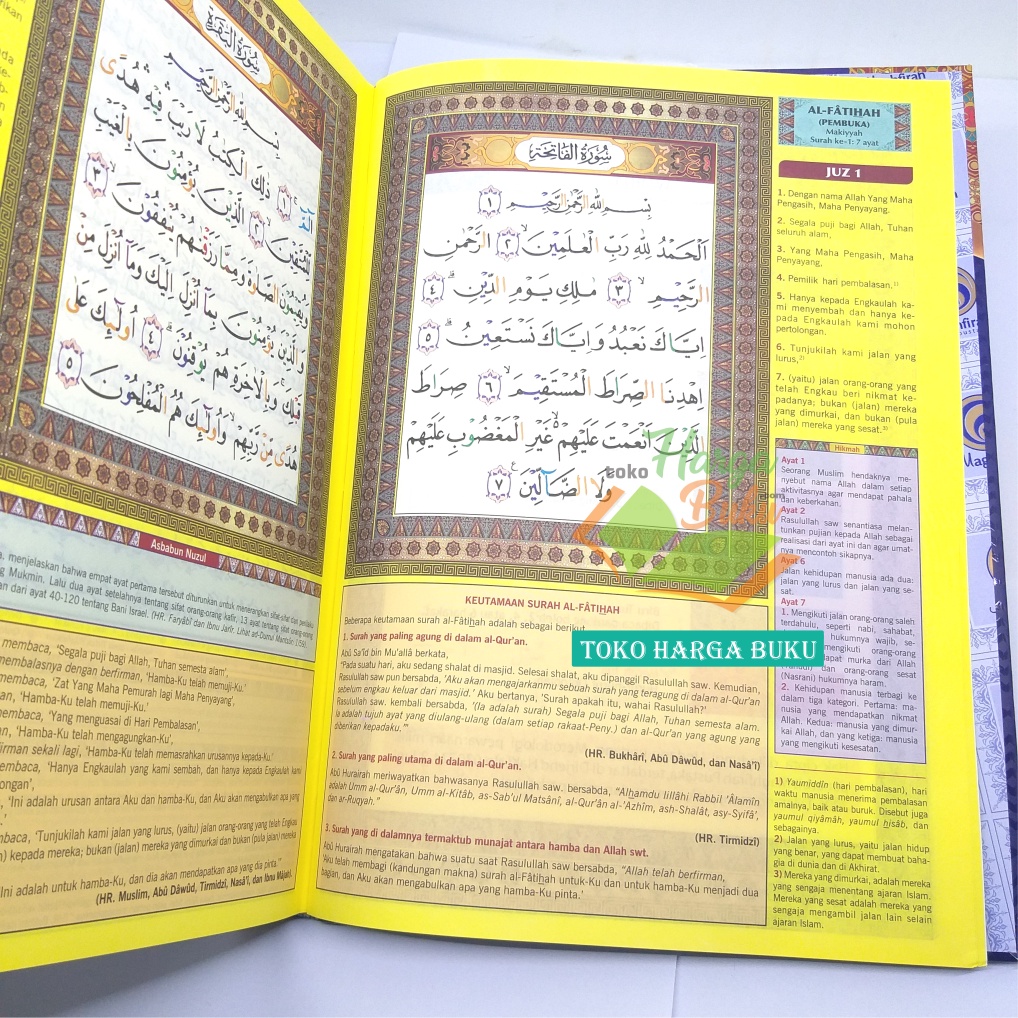 سُورَةُ الْفَاتِحَةِ
بِسْمِ اللّٰهِ الرَّحْمٰنِ الرَّحِيْمِ ١
اَلْحَمْدُ لِلّٰهِ رَبِّ الْعٰلَمِيْنَۙ ٢ الرَّحْمٰنِ
الرَّحِيْمِۙ ٣ مٰلِكِ يَوْمِ الدِّيْنِۗ ٤
اِيَّاكَ نَعْبُدُ وَاِيَّاكَ نَسْتَعِيْنُۗ ٥
اِهْدِنَا الصِّرَاطَ الْمُسْتَقِيْمَۙ ٦ صِرَاطَ
الَّذِيْنَ اَنْعَمْتَ عَلَيْهِمْ ەۙ غَيْرِ الْمَغْضُوْبِ عَلَيْهِمْ
وَلَا الضَّاۤلِّيْنَ ࣖ ٧
AL-FÂTIHAH
(PEMBUKA)
Makiyyah
Surah ke-1: 7 ayat
JUZ 1
1. Dengan nama Allah Yang Maha
Pengasih, Maha Penyayang.
2. Segala puji bagi Allah, Tuhan
seluruh alam,
3. Yang Maha Pengasih, Maha
Penyayang,
4. Pemilik hari pembalasan.1)
5. Hanya kepada Engkaulah ka-
mi menyembah dan hanya ke-
pada Engkaulah kami mohon
pertolongan.
6. Tunjukilah kami jalan yang
lurus,2)
7. (yaitu) jalan orang-orang yang
telah Engkau beri nikmat ke-
padanya; bukan (jalan) mereka
yang dimurkai, dan bukan (pula
jalan) mereka yang sesat.3)
Hikmah
Ayat 1
Seorang Muslim hendaknya me-
nyebut nama Allah dalam setiap
aktivitasnya agar mendapat pahala
dan keberkahan.
Ayat 2
Rasulullah saw senantiasa melan-
tunkan pujian kepada Allah sebagai
realisasi dari ayat ini dan agar umat-
nya mencontoh sikapnya.
Ayat 6
Jalan kehidupan manusia ada dua:
jalan yang lurus dan jalan yang se-
sat.
Ayat 7
1. Mengikuti jalan orang-orang saleh
terdahulu, seperti nabi, sahabat,
hukumnya wajib, se-
mengikuti orang-orang
dapat murka dari Allah
dan orang-orang sesat
(Nasrani) hukumnya haram.
2. Kehidupan manusia terbagi ke
dalam tiga kategori. Pertama: ma-
nusia yang mendapatkan nikmat
Allah. Kedua: manusia yang dimur-
kai Allah, dan yang ketiga: manusia
yang mengikuti kesesatan.
1) Yaumiddîn (hari pembalasan), hari
waktu manusia menerima pembalasan
amalnya, baik atau buruk. Disebut juga
yaumul qiyâmah, yaumul hisâb, dan
sebagainya.
2) Jalan yang lurus, yaitu jalan hidup
yang benar, yang dapat membuat baha-
gia di dunia dan di Akhirat.
3) Mereka yang dimurkai, adalah mereka
yang sengaja menentang ajaran Islam.
Mereka yang sesat adalah mereka yang
sengaja mengambil jalan lain selain
ajaran Islam.
KEUTAMAAN SURAH AL-FÂTIHAH
Beberapa keutamaan surah al-Fâtihah adalah sebagai berikut
1. Surah yang paling agung di dalam al-Qur'an.
Abû Sa'îd bin Mu'allâ berkata,
"Pada suatu hari, aku sedang shalat di masjid. Selesai shalat, aku dipanggil Rasulullah saw. Kemudian,
Rasulullah saw pun bersabda, 'Aku akan mengajarkanmu sebuah surah yang teragung di dalam al-Qur'an
sebelum engkau keluar dari masjid.' Aku bertanya, 'Surah apakah itu, wahai Rasulullah?'
Rasulullah saw. kembali bersabda, '(Ia adalah surah) Segala puji bagi Allah, Tuhan semesta alam.
Ia adalah tujuh ayat yang diulang-ulang (dalam setiap rakaat-Peny.) dan al-Qur'an yang agung yang
diberikan kepadaku.'"
(HR. Bukhârî, Abû Dâwûd, dan Nasâ'î)
2. Surah yang paling utama di dalam al-Qur'an.
Abû Hurairah meriwayatkan bahwasanya Rasulullah saw. bersabda, "Alhamdu lillâhi Rabbil 'Âlamîn
adalah Umm al-Qur'ân, Umm al-Kitâb, as-Sab'ul Matsânî, al-Qur'ân al-'Azhîm, ash-Shalât, asy-Syifâ',
dan ar-Ruqyah."
(HR. Tirmidzî)
3. Surah yang di dalamnya termaktub munajat antara hamba dan Allah swt.
Abû Hurairah mengatakan bahwa suatu saat Rasulullah saw bersabda, "Allah telah berfirman,
'Aku telah membagi (kandungan makna) surah al-Fâtihah untuk-Ku dan untuk hamba-Ku menjadi dua
bagian, dan Aku akan mengabulkan apa yang hamba-Ku pinta.'
toko
Harga
Buku
.com
TOKO HARGA BUKU
سُورَةُ الْبَقَرَةِ
بِسْمِ اللّٰهِ الرَّحْمٰنِ الرَّحِيْمِ
الۤمّۤ ۚ ١ ذٰلِكَ الْكِتٰبُ لَا رَيْبَ ۛ فِيْهِ ۛ هُدًى
لِّلْمُتَّقِيْنَۙ ٢ الَّذِيْنَ يُؤْمِنُوْنَ بِالْغَيْبِ
وَيُقِيْمُوْنَ الصَّلٰوةَ وَمِمَّا رَزَقْنٰهُمْ يُنْفِقُوْنَۙ ٣
وَالَّذِيْنَ يُؤْمِنُوْنَ بِمَآ اُنْزِلَ اِلَيْكَ وَمَآ اُنْزِلَ مِنْ
قَبْلِكَ ۚ وَبِالْاٰخِرَةِ هُمْ يُوْقِنُوْنَۗ ٤ اُولٰۤىِٕكَ عَلٰى
هُدًى مِّنْ رَّبِّهِمْ ۙ وَاُولٰۤىِٕكَ هُمُ الْمُفْلِحُوْنَ ٥
Asbabun Nuzul
menjelaskan bahwa empat ayat pertama tersebut diturunkan untuk menerangkan sifat-sifat dan perilaku
Mukmin. Lalu dua ayat setelahnya tentang sifat orang-orang kafir, 13 ayat tentang orang-orang
dari ayat 40-120 tentang Bani Israel. (HR. Faryâbî dan Ibnu Jarîr. Lihat ad-Durrul Mantsûr: 1/59).
membaca, 'Segala puji bagi Allah, Tuhan semesta alam',
membalasnya dengan berfirman, 'Hamba-Ku telah memuji-Ku.'
membaca, 'Zat Yang Maha Pemurah lagi Maha Penyayang',
'Hamba-Ku telah memuji-Ku.'
membaca, 'Yang menguasai di Hari Pembalasan',
'Hamba-Ku telah mengagungkan-Ku',
sekali lagi, 'Hamba-Ku telah memasrahkan urusannya kepada-Ku.'
'Hanya Engkaulah yang kami sembah, dan hanya kepada Engkaulah kami
'Ini adalah urusan antara Aku dan hamba-Ku, dan Aku akan mengabulkan apa yang
'Tunjukilah kami jalan yang lurus, (yaitu) jalan orang-orang yang telah Engkau
kepada mereka; bukan (jalan) mereka yang dimurkai dan bukan (pula jalan) mereka
'Ini adalah untuk hamba-Ku, dan dia akan mendapatkan apa yang dia pinta.'"
(HR. Muslim, Abû Dâwûd, Tirmidzî, Nasâ'î, dan Ibnu Mâjah).